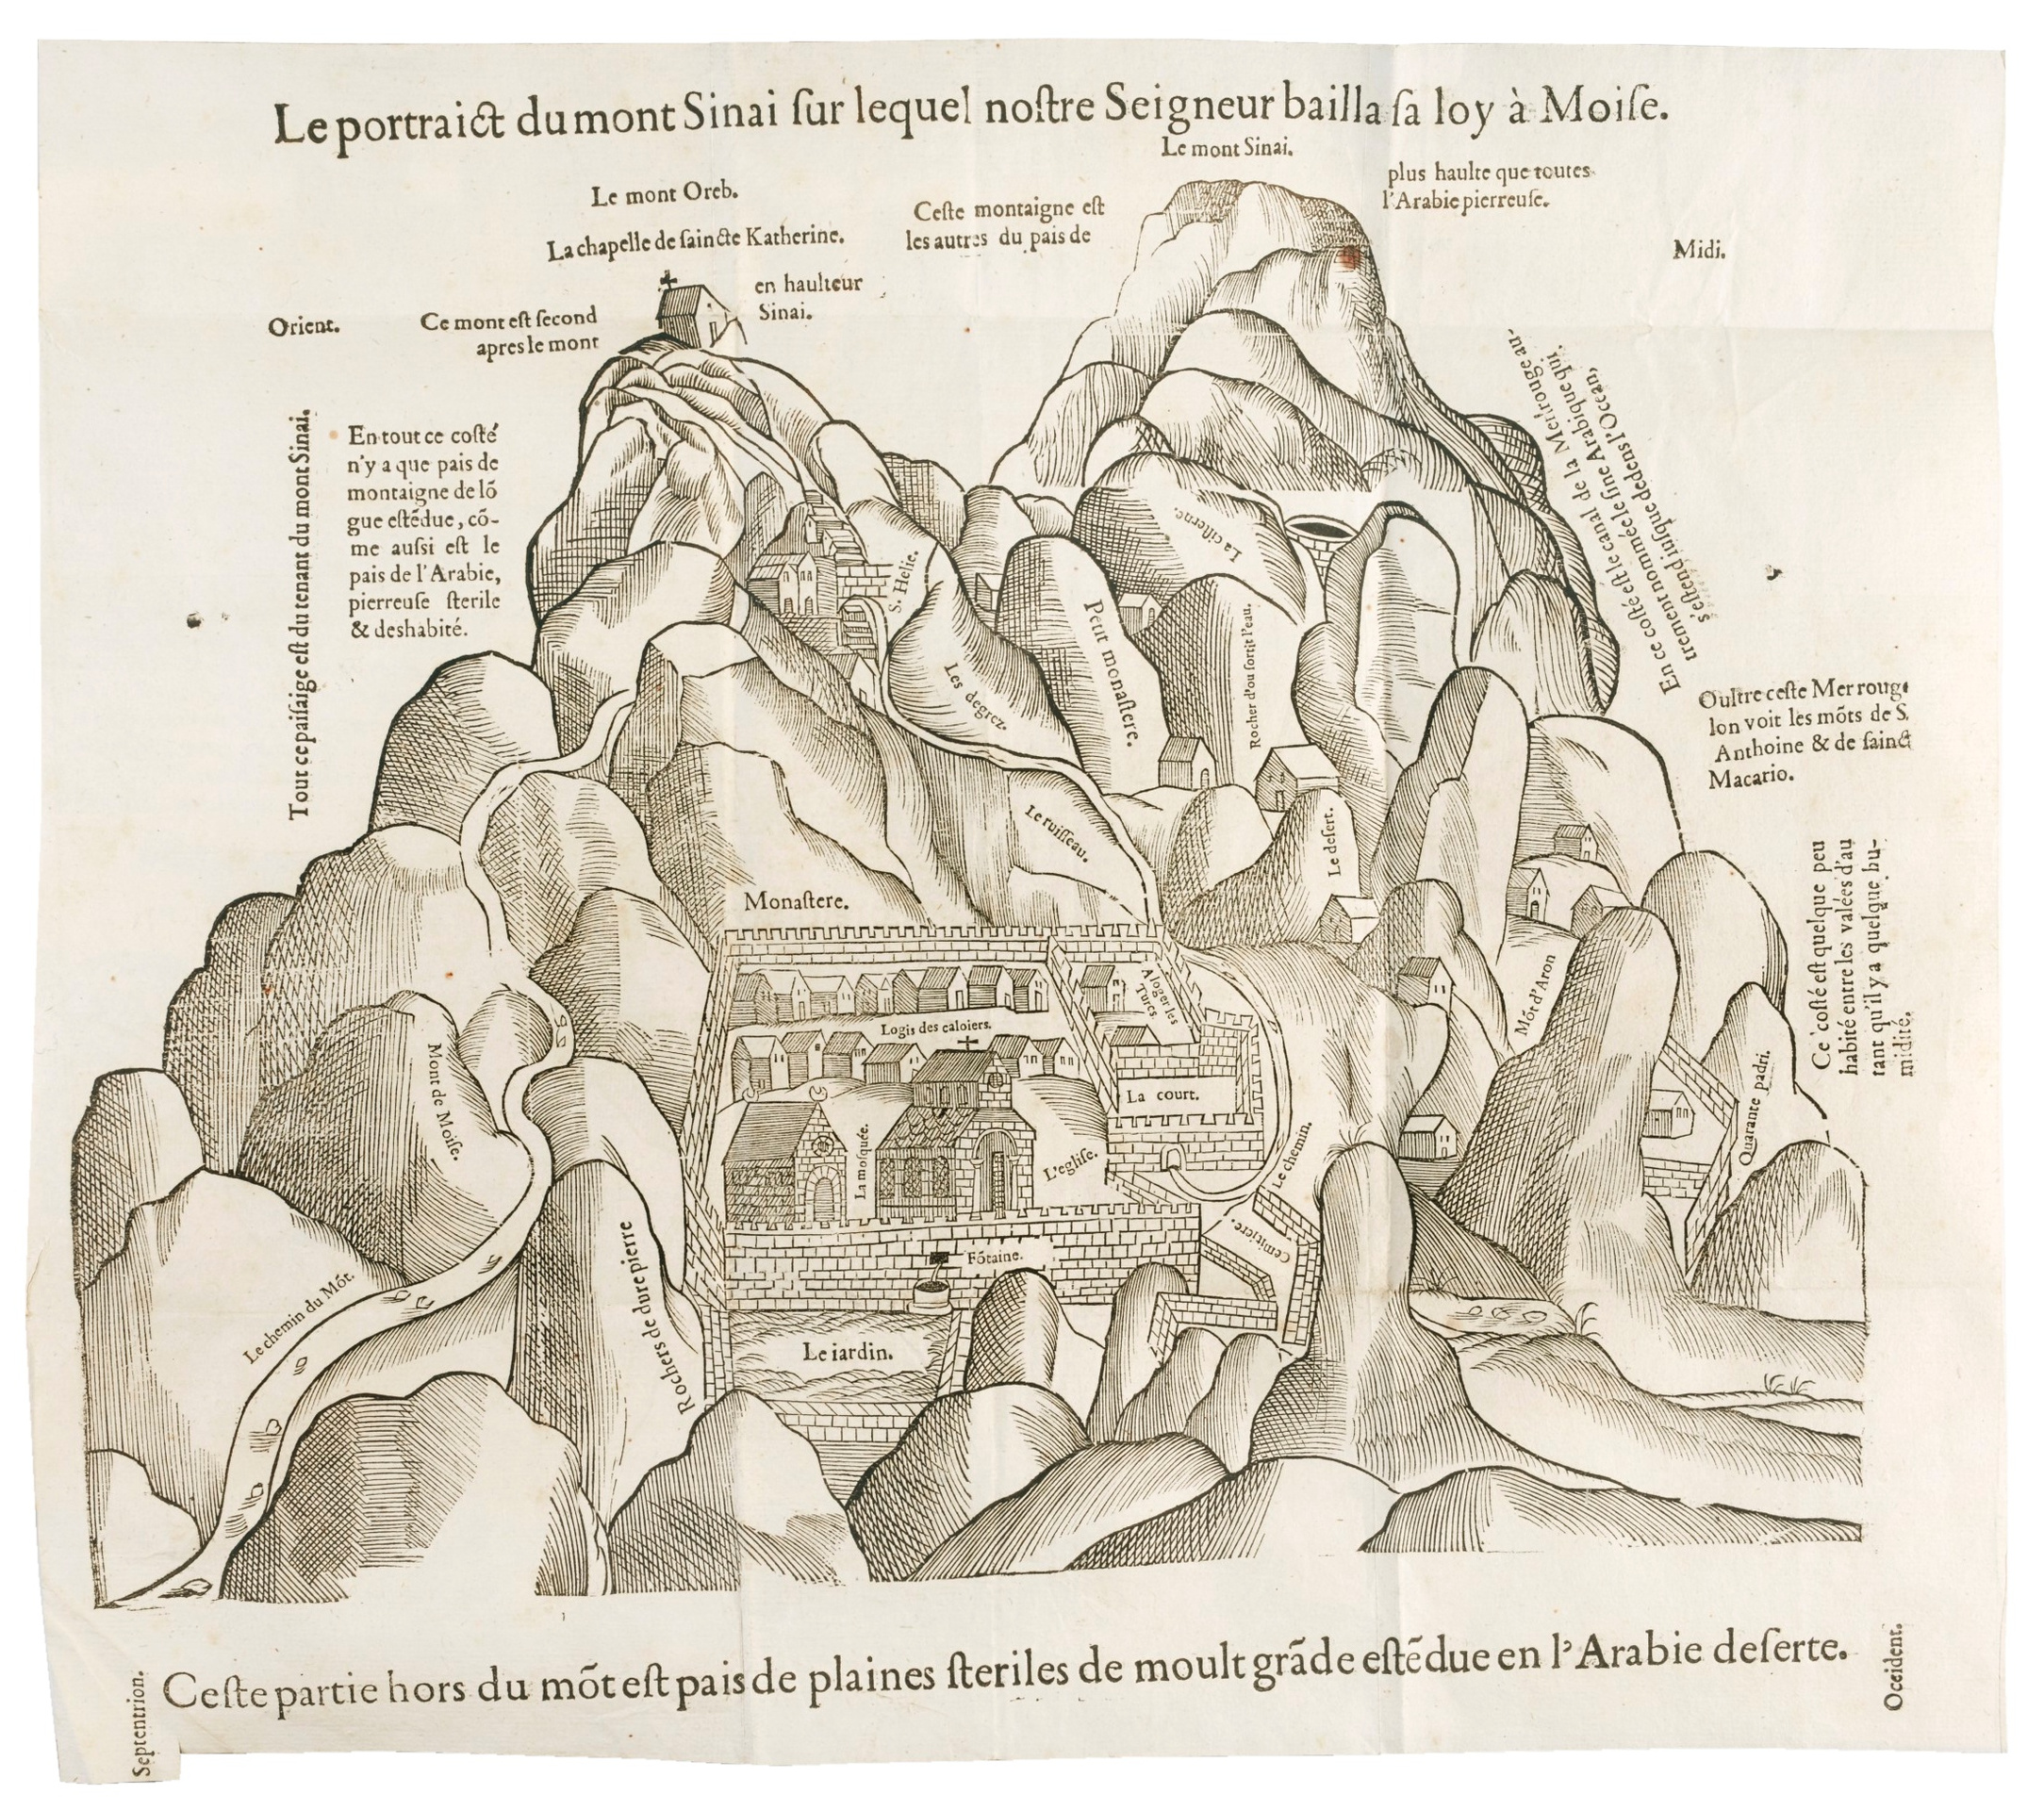 Le portraict du mont Sinai ſur lequel noſtre Seigneur bailla ſa loy à Moiſe.
Le mont Sinai.
Le mont Oreb.
La chapelle de ſaincte Katherine.
Ceſte montaigne eſt
les autres du païs de
plus haulte que toutes
l'Arabie pierreuſe.
Midi.
Orient.
Ce mont eſt ſecond
apres le mont
en haulteur
Sinai.
Tout ce païſaige eſt du tenant du mont Sinai.
En tout ce coſté
n'y a que païs de
montaigne de lō
gue eſtēdue, cō-
me auſsi eſt le
païs de l'Arabie,
pierreuſe ſterile
& deshabité.
En ce coſté eſt le canal de la Mer rouge au-
trement nommée le ſine Arabique qui
s'eſtend iuſque dedens l'Ocean,
Oultre ceſte Mer rouge
lon voit les mōts de S.
Anthoine & de ſainct
Macario.
Ce coſté eſt quelque peu
habité entre les valées d'au
tant qu'il y a quelque hu-
midité.
La ciſterne.
S. Helie.
Les degrez.
Petit monaſtere.
Rocher d'ou ſortit l'eau.
Le ruiſſeau.
Le deſert.
Monaſtere.
Logis des caloiers.
A loger les
Turcs
La court.
La moſquée.
L'egliſe.
Le chemin.
Cemitiere.
Fōtaine.
Le iardin.
Mōt d'Aron
Quarante padri.
Mont de Moiſe.
Le chemin du Mōt.
Rochers de dure pierre
Ceſte partie hors du mōt eſt païs de plaines ſteriles de moult grāde eſtēdue en l'Arabie deſerte.
Septentrion.
Occident.